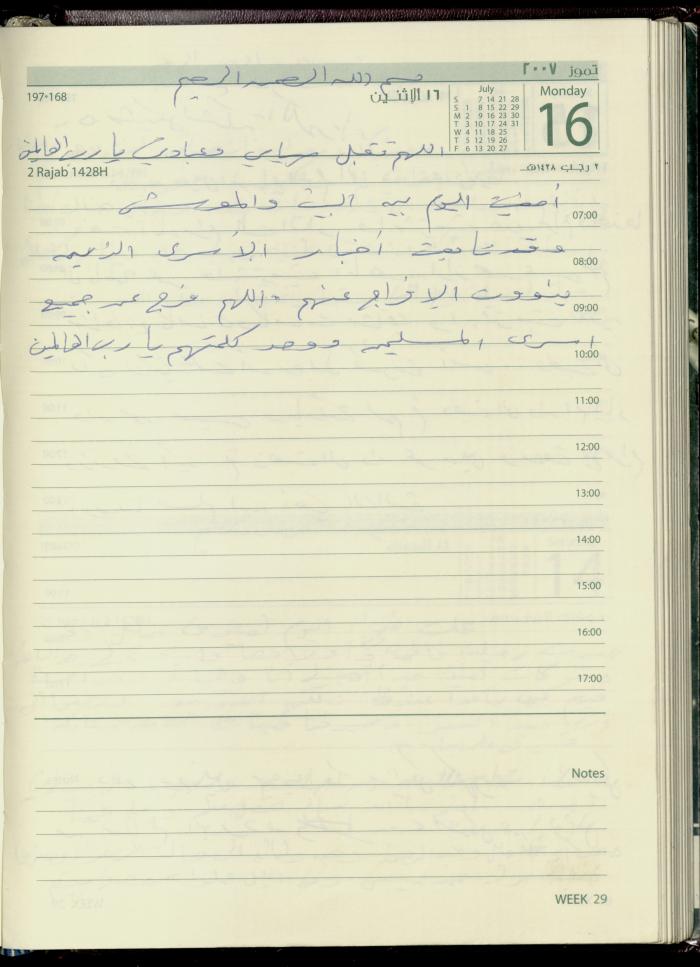 بسم الله الرحمن الرحيم
تموز ٢٠٠٧
197-168
١٦ الاثنين
July
S 7 14 21 28
S 1 8 15 22 29
M 2 9 16 23 30
T 3 10 17 24 31
W 4 11 18 25
T 5 12 19 26
F 6 13 20 27
Monday
16
اللهم تقبل صيامي وعبادتي يا رب العالمين
2 Rajab 1428H
٢ رجب ١٤٢٨هـ
أمضيت اليوم بين البيت والمورستان
07:00
وقد تابعت أخبار الأسرى الذين
08:00
ينوون الإفراج عنهم اللهم فرج عن جميع
09:00
اسرى المسلمين ووحد كلمتهم يا رب العالمين
10:00
11:00
12:00
13:00
14:00
15:00
16:00
17:00
Notes
WEEK 29